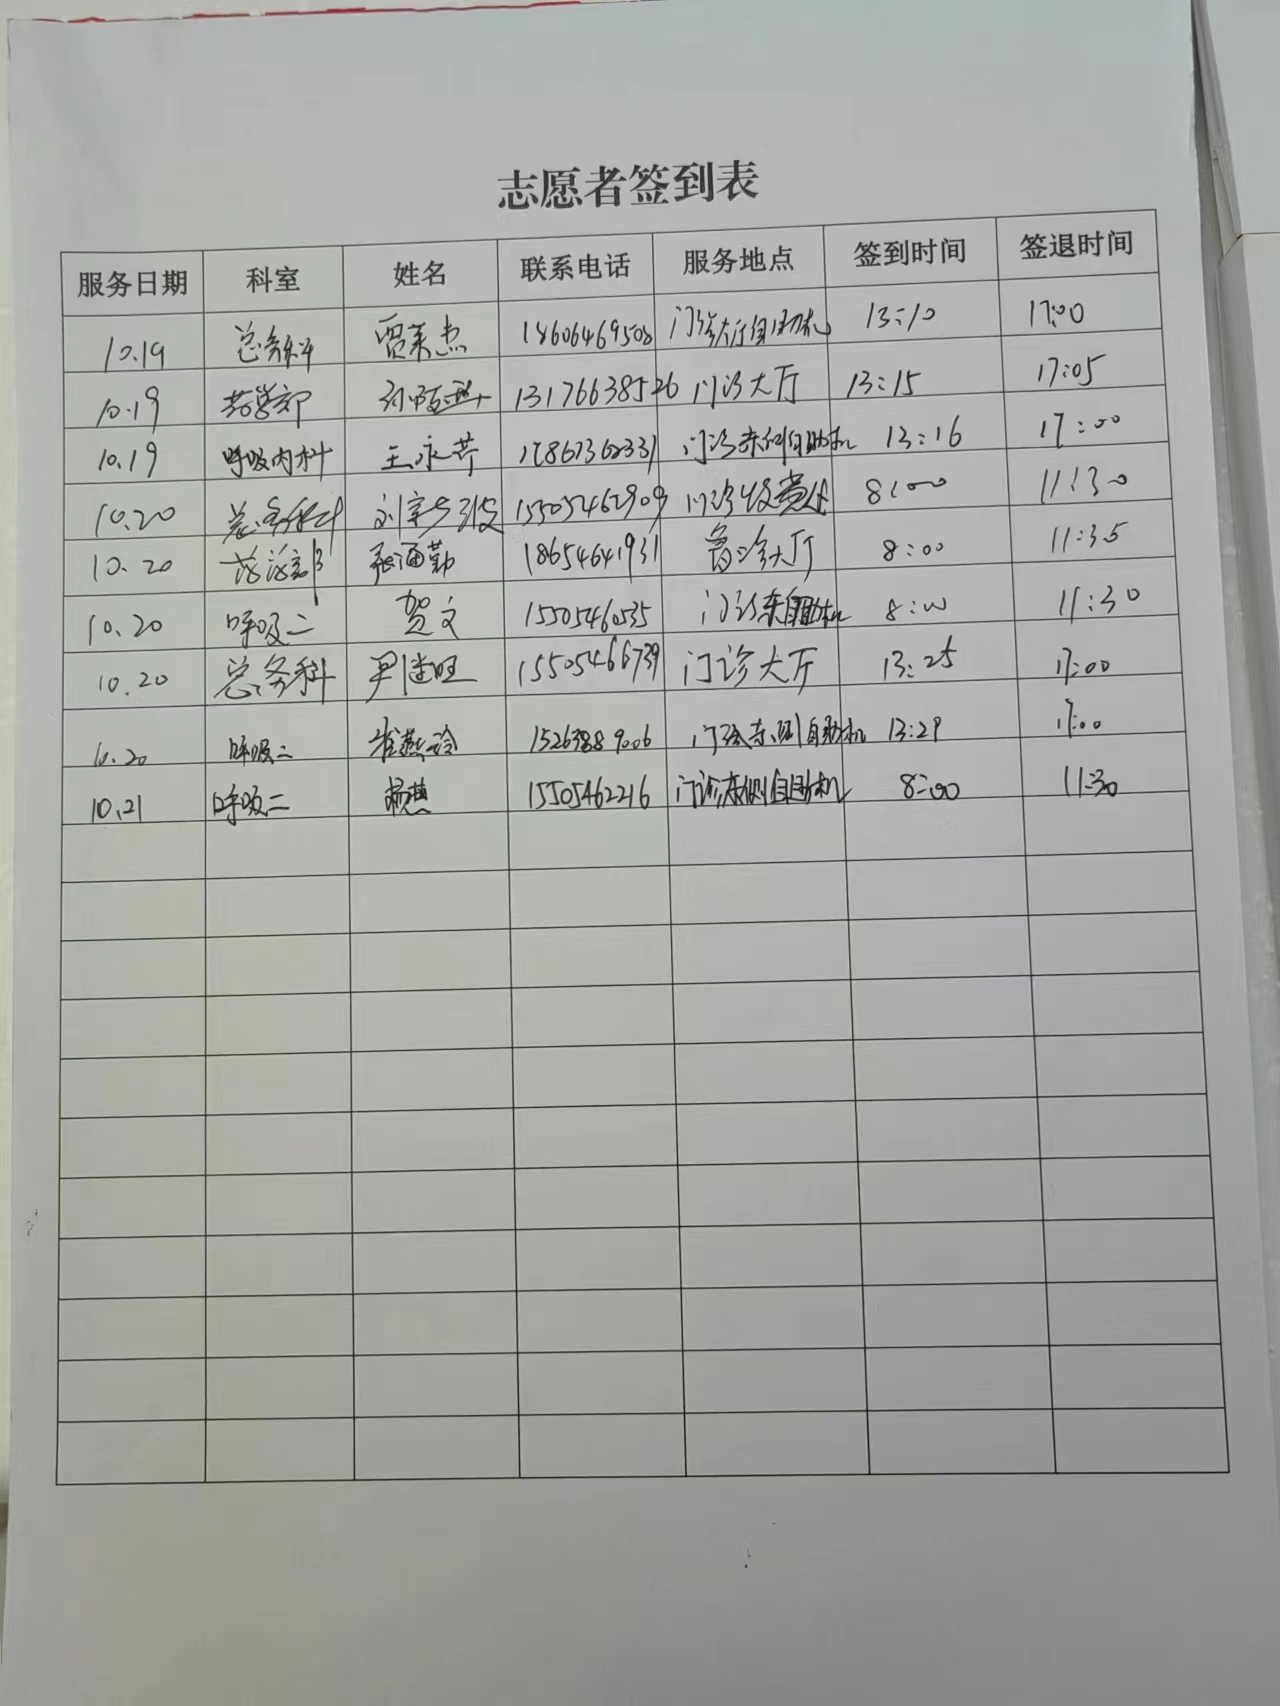 志愿者签到表
服务日期 科室 姓名 联系电话 服务地点 签到时间 签退时间
10.19 总务科 贾莱杰 18606469508 门诊大厅自助机 13:10 17:00
10.19 药学部 13176638526 门诊大厅 13:15 17:05
10.19 呼吸内科 王永芹 17867362331 门诊东侧自助机 13:16 17:00
10.20 总务科 15505462909 门诊收费处 8:00 11:30
10.20 张通勤 18654641931 大厅 8:00 11:35
10.20 呼吸二 贺文 15505460535 门诊东自助机 8:00 11:30
10.20 总务科 尹继旺 15505466739 门诊大厅 13:25 17:00
10.20 呼吸二 崔燕玲 15263889006 门诊东侧自助机 13:29 17:00
10.21 呼吸二 杨燕 15505462216 门诊东侧自助机 8:00 11:30